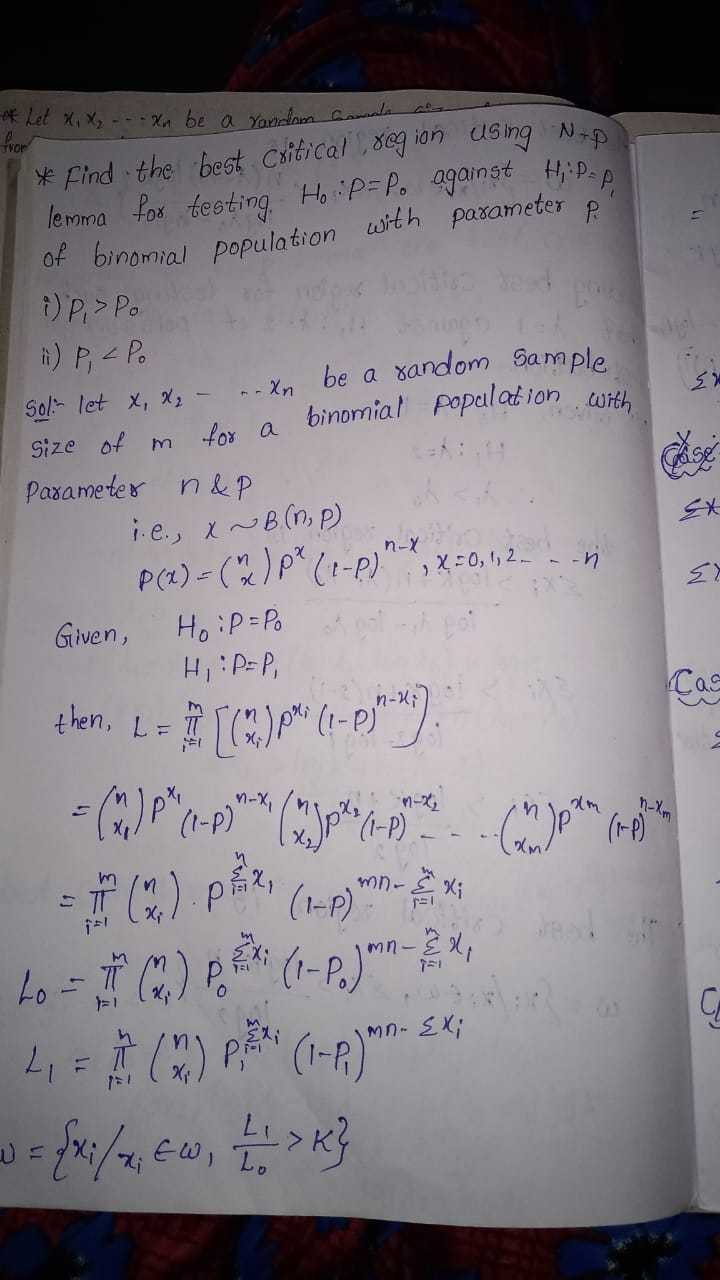 * Let x₁, x₂ --- xₙ be a random
from
* Find the best critical region using N-P
lemma for testing H₀:P=P₀ against H₁:P=P₁
of binomial population with parameter P.
i) P₁ > P₀
ii) P₁ < P₀
Sol:- let x₁ x₂ - --xₙ be a random sample
size of m for a binomial population with
Parameter n & P
i.e., x ~ B(n, P)
P(x) = (n x) pˣ (1-P)ⁿ⁻ˣ, x=0,1,2- - -n
Given, H₀:P=P₀
H₁:P=P₁
then, L = ᵐπᵢ₌₁ [(n xᵢ) P^xᵢ (1-P)^n-xᵢ].
= (n x₁) P^x₁ (1-P)^n-x₁ (n x₂) P^x₂ (1-P)^n-x₂ - - -- (n xm) P^xm (1-P)^n-xm
= ᵐπᵢ₌₁ (n xᵢ) . P^ⁿΣᵢ₌₁ x₁ (1-P)^mn-ᵐΣᵢ₌₁ xᵢ
L₀ = ᵐπᵢ₌₁ (n xᵢ) P₀^ᵐΣᵢ₌₁ xᵢ (1-P₀)^mn-ᵐΣᵢ₌₁ xᵢ
L₁ = ⁿπᵢ₌₁ (n xᵢ) P₁^ᵐΣᵢ₌₁ xᵢ (1-P₁)^mn-Σxᵢ
ω = {xᵢ/xᵢ ∈ ω, L₁/L₀ > K}
=
Case
Cas